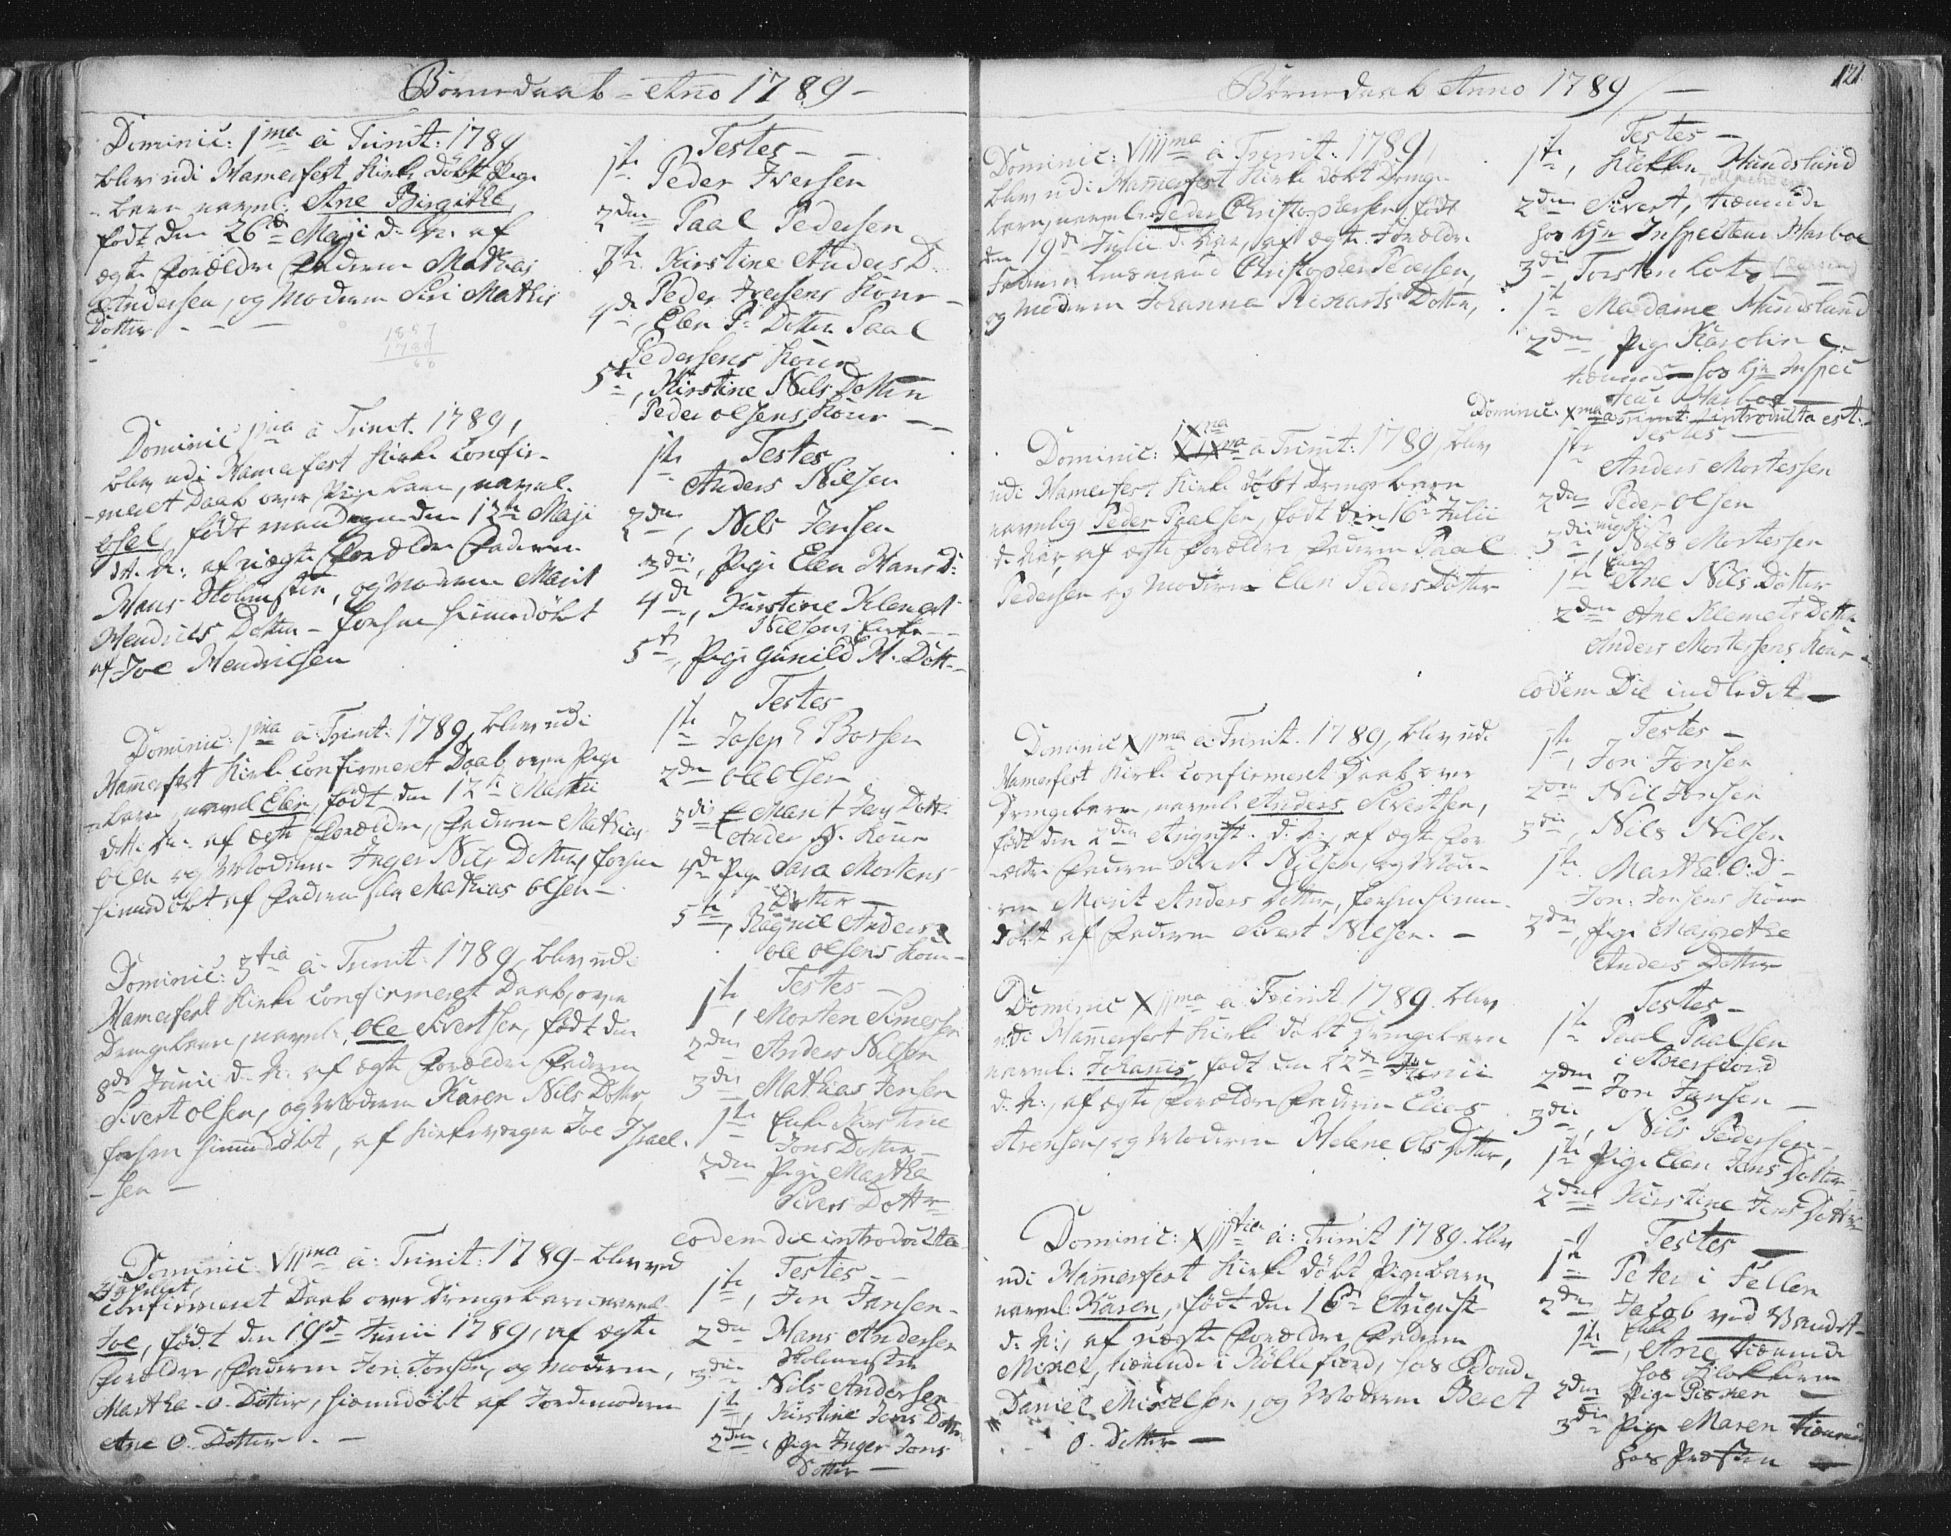 Børnedaab - Anno 1789 -
Dominic: 1ma a Trinit: 1789
blev udi Hamerfest Kirke døbt Pige
barn navnl: Ane Birgithe,
født den 26de Maji d. A: af
ægte Forældre Faderen Mathias
Andersen, og Moderen Siri Mathis
Dotter - - -
1857
1789
60
Testes - -
1ste Peder Iversen
2den Paal Pedersen
3die Kirstine Anders D.
Peder Iversens Kone -
4de, Elen P: Dotter Paal
Pedersens Kone
5te, Kirstine Nils Dotter
Peder Olsens Kone - -
Dominic 1ma a Trinit. 1789,
blev udi Hamerfest Kirke confir-
meret Daab over Pige barn, navnl.
født mandagen den 12te Maji
d. A: af uægte Forældre Faderen
Hans Holmsten, og Moderen Marit
Hendrics Dotter - forhen hiemedøbt
af Joe Hendricsen
1ste Testes
Anders Nilsen
2den, Nils Jensen
3die, Pige Elen Hans D:
4de, Kirstine Klemet
Nilsens Enke - -
5te, Pige Gunild H. Dott -
Dominic: 1ma a Trinit: 1789, blev udi
Hamerfest Kirke confirmeret Daab over Pige
barn, navnl Elen, født den 12te Martii
dette A: af ægte Forældre, Faderen Mathias
Olsen og Moderen Inger Nils Dotter, forhen
hiemdøbt af Faderen selv Mathias Olsen -
1ste Testes
Joseph Borsen
2den Ole Olsen
3die Marit Jens Dott:
Anders A. Kone
4de Pige Sara Mortens
Dotter -
5te, Ragnil Anders D
Ole Olsens Kone -
Dominic: 3tia a Trinit: 1789, blev udi
Hamerfest Kirke confirmeret Daab, over
Drengebarn, navnl. Ole Sivertsen, født den
8de Junii d. A: af ægte Forældre Faderen
Sivert Olsen, og Moderen Karen Nils Dotter,
forhen hiemmedøbt, af Kirkeværgen Joe Israel-
- sen -
Testes -
1ste, Morten Simesen
2den Anders Nilsen
3die Mathias Jensen
1ste Enke Kirstine
Jons Dotter -
2den Pige Martha
Sivers Dotter
eodem die introducta
Dominic: VIIma a: Trinit: 1789 - blev ved
confirmeret Daab over Drengebarn navnl.
Joe, født den 19de Junii 1789, af ægte
Forældre, Faderen Jon Jonsen, og Moderen,
Martha O. Dotter, hiemdøbt af Jordemoderen
Ane O. Dotter. -
Testes -
1ste, Jon Jansen -
2den Hans Andersen
Holmgsten
3die Nils Andersen
1ste, Kirstine Jons Dotter
2den, Pige Inger Jons
Dotter -
Børnedaab Anno 1789 -
121
Dominic: VIIIIma a Trinit: 1789,
blev udi Hamerfest Kirke døbt Drenge
barn, navnl: Peder Christophersen, født
den 19de Julii d. Aar, af ægte Forældre
Faderen Husmand Christopher Pedersen,
og Moderen Johanna Rickarts Dotter,
Testes -
1ste, Klokker Hundslund
2den Sivert, tienende
hos Hr Inspecteur Harboe
3die Torsten Lots
1ste Madame Hundslund
2den, Pige Karolin C.
tienende hos Hr Inspec
teur Harboe -
Dominic: Xma a Trinit: introducta est.
IXna
Dominic: XIXma a Trinit: 1789, blev
udi Hamerfest Kirke døbt Drengebarn
navnlig Peder Paalsen, født den 16de Julii
d. Aar, af ægte Forældre Faderen Paal
Pedersen og Moderen Elen Peders Dotter
Testes -
1ste Anders Mortessen
2den Peder Olsen
3die, Nils Mortessen
1ste Ane Nils Dotter
2den Ane Klemets Dotter
Anders Mortessens Kone -
eodem Die indledet -
Dominic XIIma a: Trinit. 1789, blev udi
Hamerfest Kirke confirmeret Daab over
Drengebarn, navnl: Anders Sivertsen,
født den 2den August d. A:, af ægte For
ældre Faderen Sivert Nilsen, og Mode-
ren Marit Anders Dotter, forhen hiem-
døbt af Faderen Sivert Nilsen. -
Testes -
1ste, Jon Jonsen
2den Nil Jonsen
3die Nils Nilsen
1ste. Martha O. D -
Jon: Jonsens Kone
2den, Pige Margrethe
Anders Dotter
Dominic XIIma a Trinit 1789. blev
udi Hamerfest Kirke døbt Drengebarn
navnl: Johanis, født den 22de Junii
d: A:, af ægte Forældre Faderen Elias
Arensen, og Moderen Helene Ols Dotter,
Testes -
1ste Paal Paalsen
i Akerfiord
2den Jon Jansen -
3die, Nils Pedersen -
1ste Pige Elen Jons Dotter
2den Kirstine Jens Dotter
Dominic: XIIItia a: Trinit 1789. blev
udi Hamerfest Kirke døbt Pigebarn
navnl: Karen, født den 16de August
d: A:, af uægte Forældre Faderen
Mikel, tienende i Kollefiord, hos Bonde
Daniel Mickelsen, og Moderen Beret
O. Dotter -
Testes -
1ste Peter i Fellen
2den Jacob ved Vandet -
1ste, Ane tienende
hos Klokkeren
2den Pige Pischen -
3die Pige Maren tienende
hos Præsten -